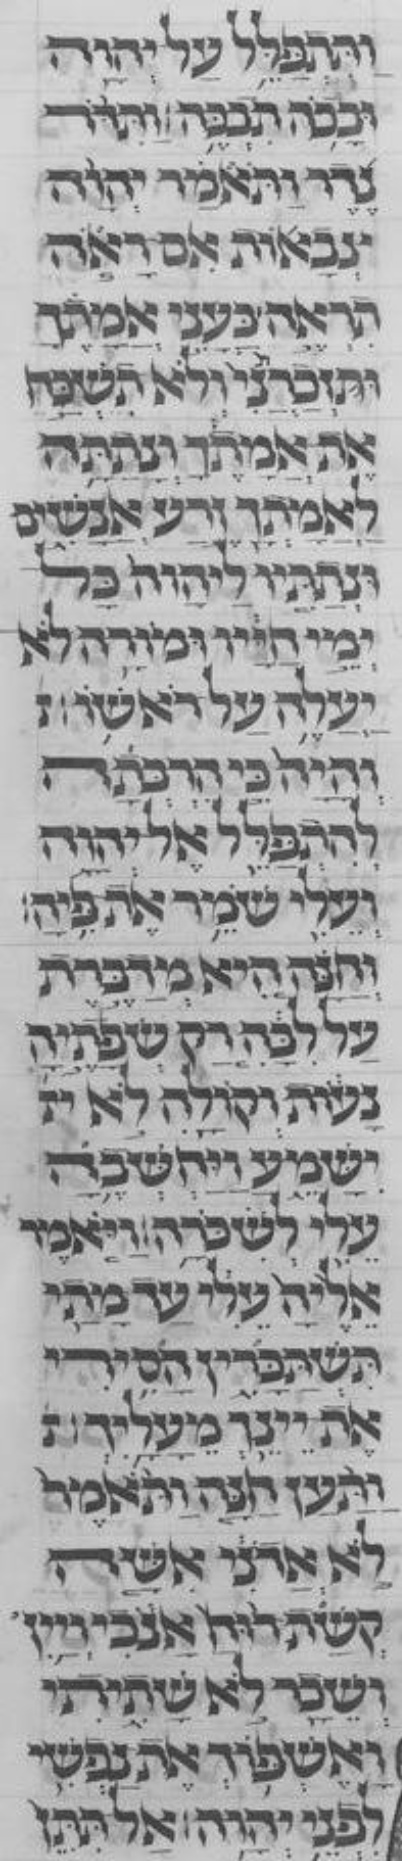 וַתִּתְפַּלֵּל עַל יְהוָה
וּבָכֹה תִבְכֶּה׃ וַתִּדֹּר
נֶדֶר וַתֹּאמַר יְהוָה
צְבָאוֹת אִם רָאֹה
תִרְאֶה בָּעֳנִי אֲמָתֶךָ
וּזְכַרְתַּנִי וְלֹא תִשְׁכַּח
אֶת אֲמָתֶךָ וְנָתַתָּה
לַאֲמָתְךָ זֶרַע אֲנָשִׁים
וּנְתַתִּיו לַיהוָה כָּל
יְמֵי חַיָּיו וּמוֹרָה לֹא
יַעֲלֶה עַל רֹאשׁוֹ׃
וְהָיָה כִּי הִרְבְּתָה
לְהִתְפַּלֵּל אֶל יְהוָה
וְעֵלִי שֹׁמֵר אֶת פִּיהָ׃
וְחַנָּה הִיא מְדַבֶּרֶת
עַל לִבָּהּ רַק שְׂפָתֶיהָ
נָּעוֹת וְקוֹלָהּ לֹא יִ
יִשָּׁמֵעַ וַיַּחְשְׁבֶהָ
עֵלִי לְשִׁכֹּרָה׃ וַיֹּאמֶר
אֵלֶיהָ עֵלִי עַד מָתַי
תִּשְׁתַּכָּרִין הָסִירִי
אֶת יֵינֵךְ מֵעָלָיִךְ׃
וַתַּעַן חַנָּה וַתֹּאמֶר
לֹא אֲדֹנִי אִשָּׁה
קְשַׁת רוּחַ אָנֹכִי וְיַיִן
וְשֵׁכָר לֹא שָׁתִיתִי
וָאֶשְׁפֹּוךְ אֶת נַפְשִׁי
לִפְנֵי יְהוָה׃ אַל תִּתֵּן